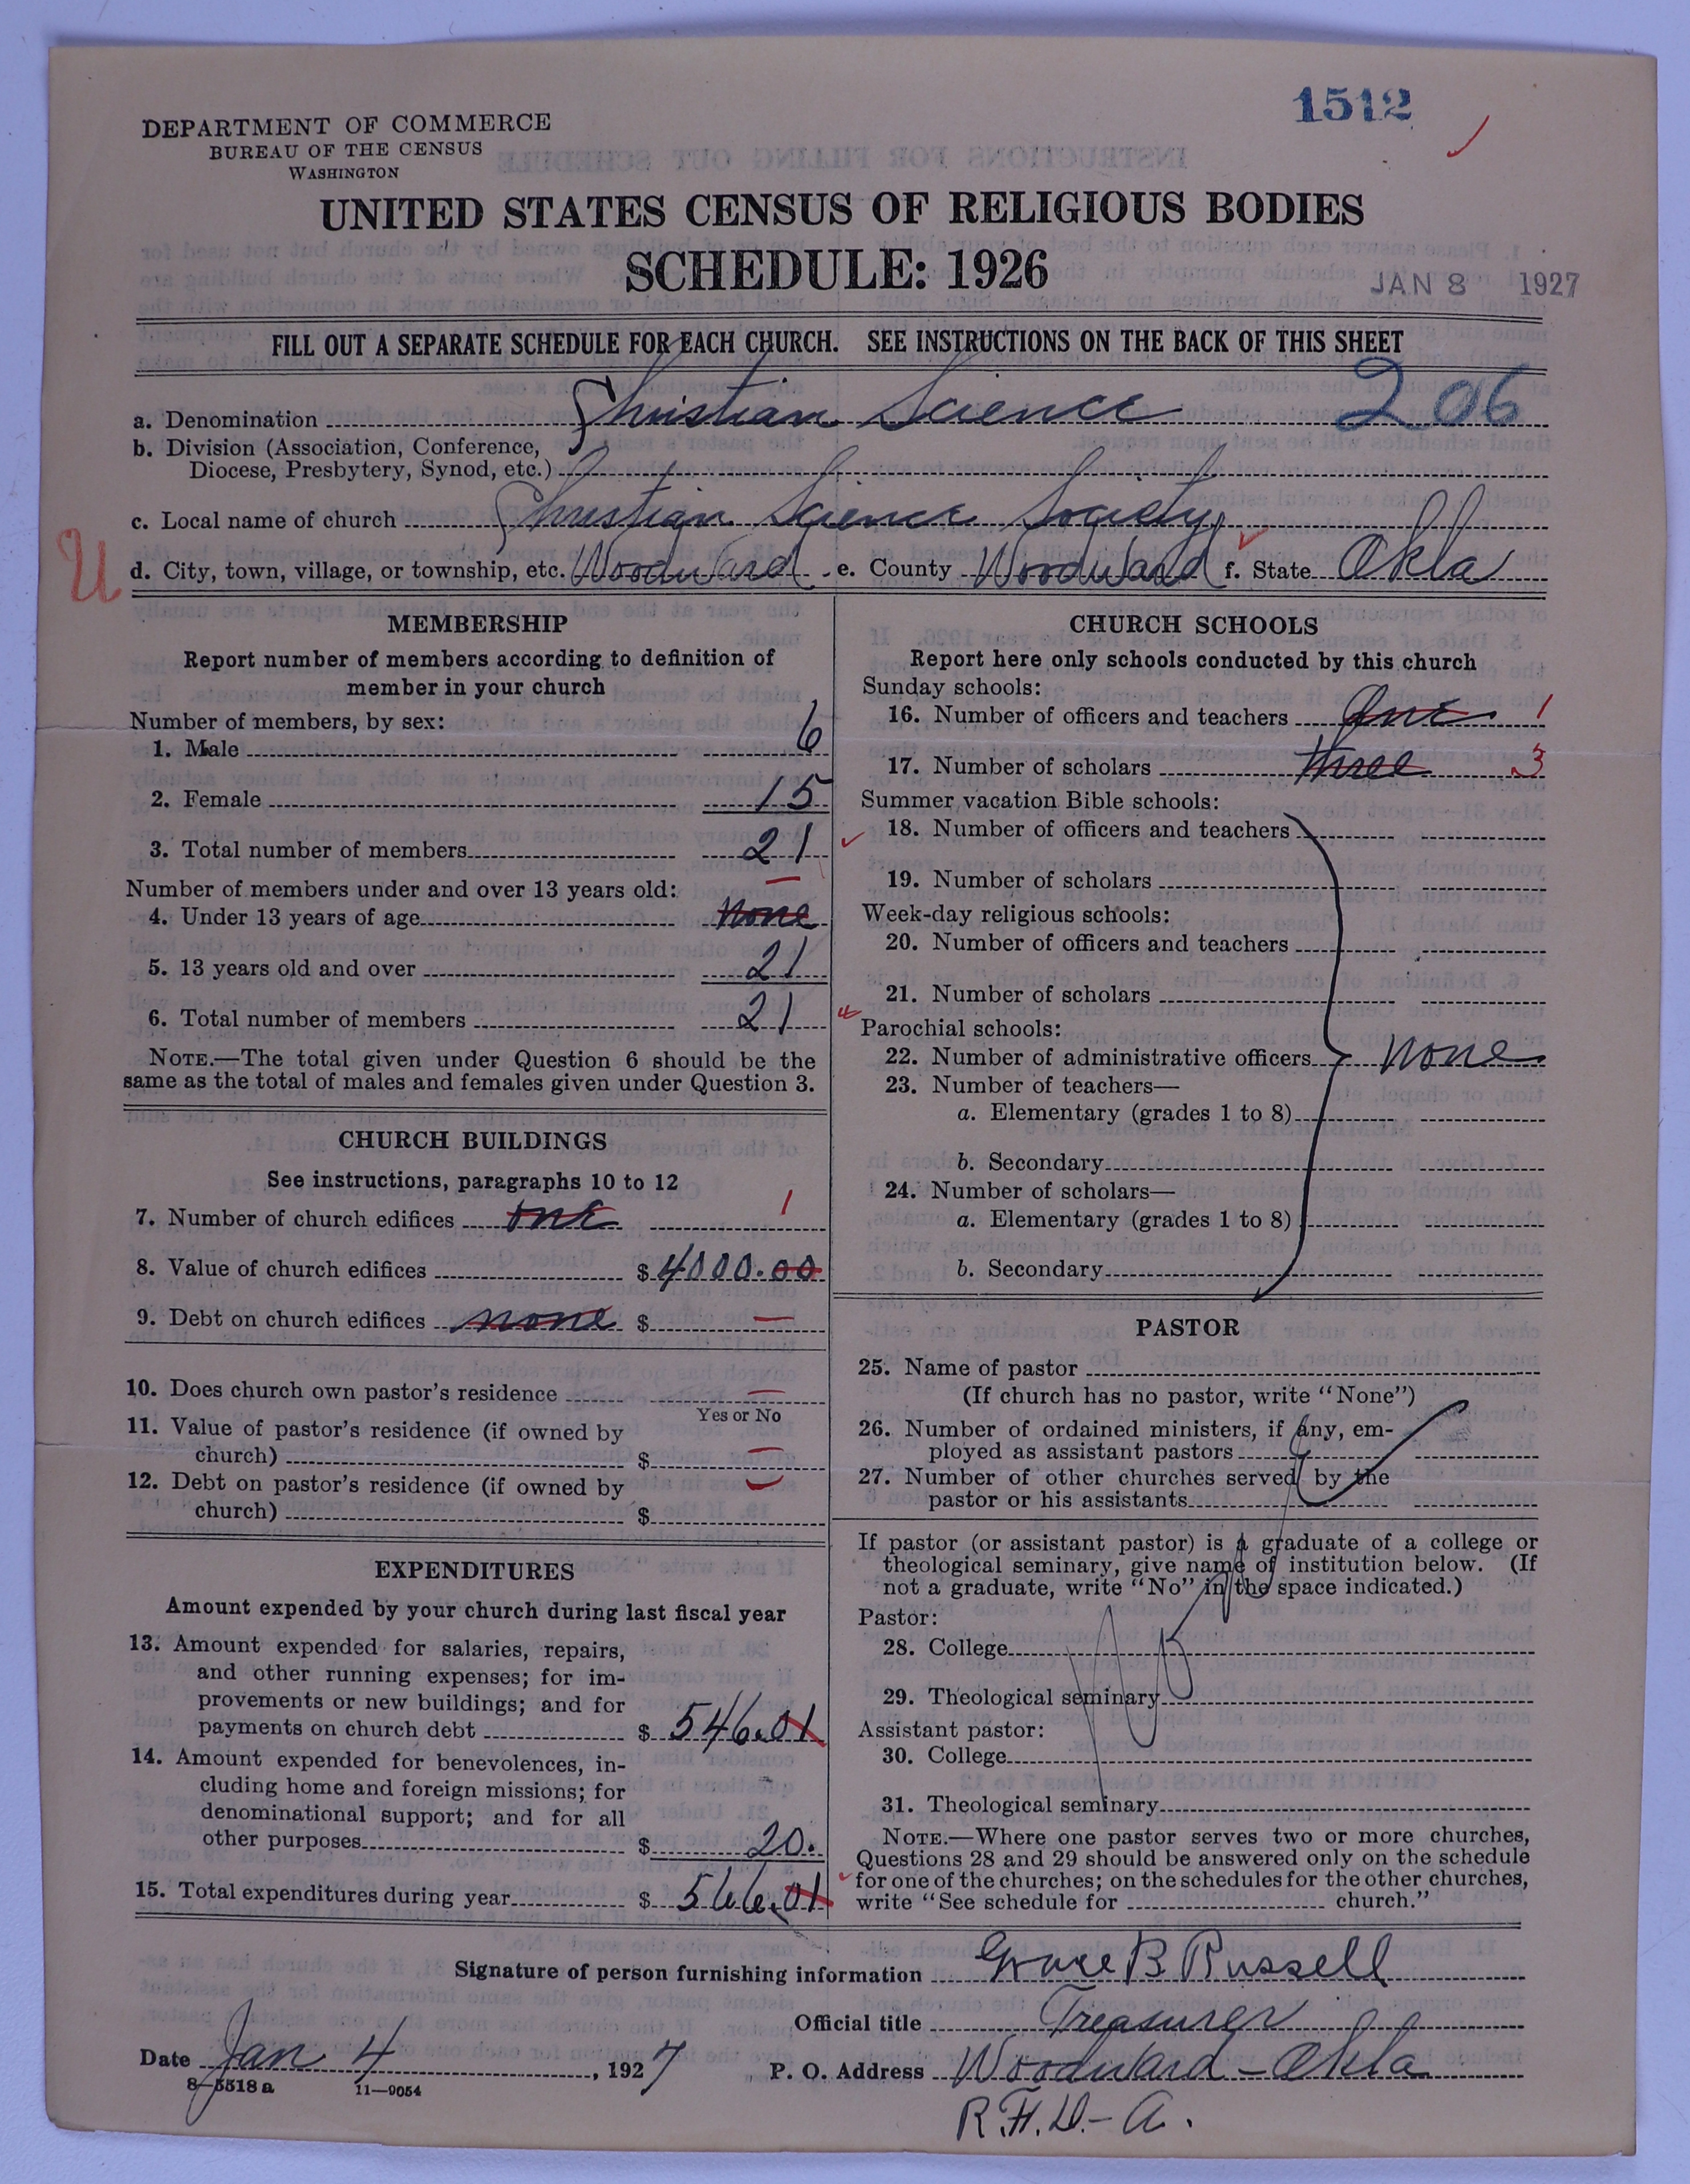 1512
DEPARTMENT OF COMMERCE
BUREAU OF THE CENSUS
WASHINGTON
UNITED STATES CENSUS OF RELIGIOUS BODIES
SCHEDULE: 1926
JAN 8 1927
FILL OUT A SEPARATE SCHEDULE FOR EACH CHURCH. SEE INSTRUCTIONS ON THE BACK OF THIS SHEET
a. Denomination Christian Science 206
b. Division (Association, Conference,
Diocese, Presbytery, Synod, etc.)
c. Local name of church Christian Science Society
U
d. City, town, village, or township, etc. Woodward e. County Woodward f. State Okla
MEMBERSHIP
Report number of members according to definition of
member in your church
Number of members, by sex:
1. Male 6
2. Female 15
3. Total number of members 21
Number of members under and over 13 years old:
4. Under 13 years of age none
5. 13 years old and over 21
6. Total number of members 21
NOTE.—The total given under Question 6 should be the
same as the total of males and females given under Question 3.
CHURCH BUILDINGS
See instructions, paragraphs 10 to 12
7. Number of church edifices one 1
8. Value of church edifices $ 4000.00
9. Debt on church edifices none $ —
10. Does church own pastor's residence —
Yes or No
11. Value of pastor's residence (if owned by
church) $ —
12. Debt on pastor's residence (if owned by
church) $ —
EXPENDITURES
Amount expended by your church during last fiscal year
13. Amount expended for salaries, repairs,
and other running expenses; for im-
provements or new buildings; and for
payments on church debt $ 546.01
14. Amount expended for benevolences, in-
cluding home and foreign missions; for
denominational support; and for all
other purposes $ 20.
15. Total expenditures during year $ 566.01
CHURCH SCHOOLS
Report here only schools conducted by this church
Sunday schools:
16. Number of officers and teachers One 1
17. Number of scholars three 3
Summer vacation Bible schools:
18. Number of officers and teachers
19. Number of scholars
Week-day religious schools:
20. Number of officers and teachers
21. Number of scholars
Parochial schools:
22. Number of administrative officers none
23. Number of teachers—
a. Elementary (grades 1 to 8)
b. Secondary
24. Number of scholars—
a. Elementary (grades 1 to 8)
b. Secondary
PASTOR
25. Name of pastor
(If church has no pastor, write "None")
26. Number of ordained ministers, if any, em-
ployed as assistant pastors
27. Number of other churches served by the
pastor or his assistants
If pastor (or assistant pastor) is a graduate of a college or
theological seminary, give name of institution below. (If
not a graduate, write "No" in the space indicated.)
Pastor:
28. College
29. Theological seminary
Assistant pastor:
30. College
31. Theological seminary
NOTE.—Where one pastor serves two or more churches,
Questions 28 and 29 should be answered only on the schedule
for one of the churches; on the schedules for the other churches,
write "See schedule for church."
Signature of person furnishing information Grace B Russell
Official title Treasurer
Date Jan 4, 1927 P. O. Address Woodward - Okla
8—5518 a 11—9054
R.F.D - A.